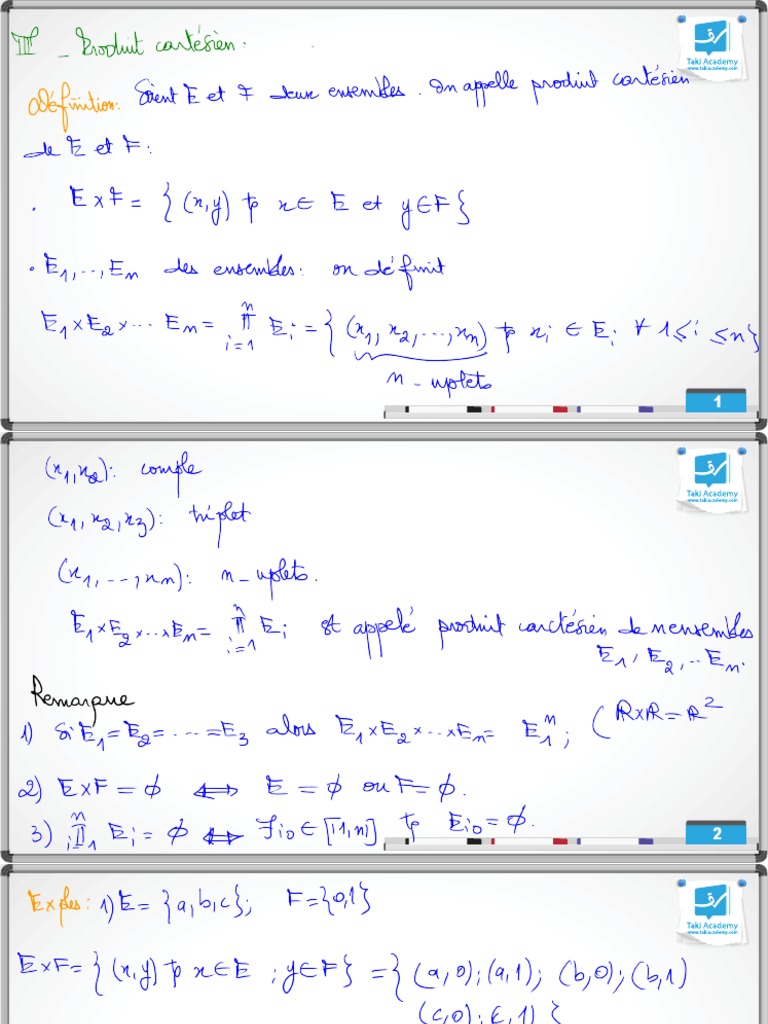 Taki Academy
www.takiacademy.com
III _ Produit cartésien :
Définition: Soient E et F deux ensembles. On appelle produit cartésien
de E et F :
. E x F = { (x,y) tp x ∈ E et y ∈ F }
. E1, .., En des ensembles : on définit
E1 x E2 x ... En = ∏ i=1 n Ei = { (x1, x2, ..., xn) tp xi ∈ Ei ∀ 1 ≤ i ≤ n }
n - uplets
1
Taki Academy
www.takiacademy.com
(x1, x2) : couple
(x1, x2, x3) : triplet
(x1, ..., xn) : n - uplets.
E1 x E2 x ... x En = ∏ i=1 n Ei est appelé produit carctésien de n ensembles
E1, E2, .. En.
Remarque
1) Si E1 = E2 = ... = E3 alors E1 x E2 x ... x En = E1^n ; ( ℝ x ℝ = ℝ^2
2) E x F = ∅ ⟺ E = ∅ ou F = ∅.
3) ∏ i=1 n Ei = ∅ ⟺ ∃ i0 ∈ [|1, n|] tp Ei0 = ∅.
2
Taki Academy
www.takiacademy.com
Exples : 1) E = {a, b, c} ; F = {0, 1}
E x F = { (x, y) tp x ∈ E ; y ∈ F } = { (a, 0) ; (a, 1) ; (b, 0) ; (b, 1)
(c, 0) ; (c, 1) }